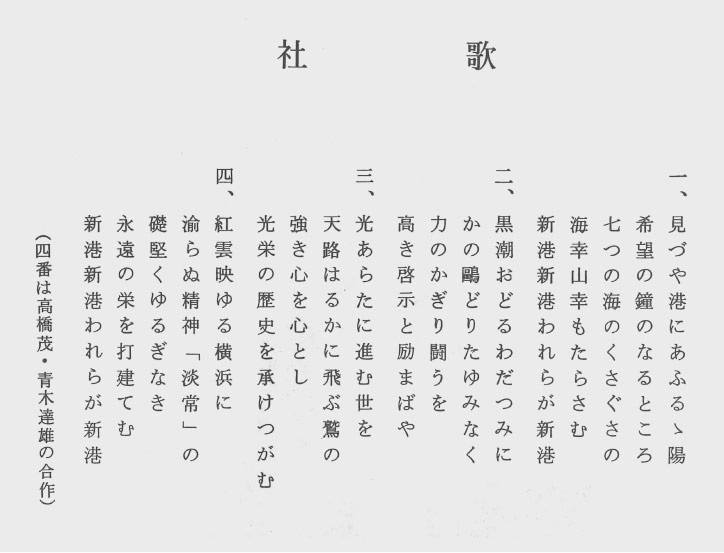 社　歌
一、見づや港にあふるゝ陽
希望の鐘のなるところ
七つの海のくさぐさの
海幸山幸もたらさむ
新港新港われらが新港
二、黒潮おどるわだつみに
かの鷗どりたゆみなく
力のかぎり闘うを
高き啓示と励まばや
三、光あらたに進む世を
天路はるかに飛ぶ鷲の
強き心を心とし
光栄の歴史を承けつがむ
四、紅雲映ゆる横浜に
渝らぬ精神「淡常」の
礎堅くゆるぎなき
永遠の栄を打建てむ
新港新港われらが新港
（四番は高橋茂・青木達雄の合作）